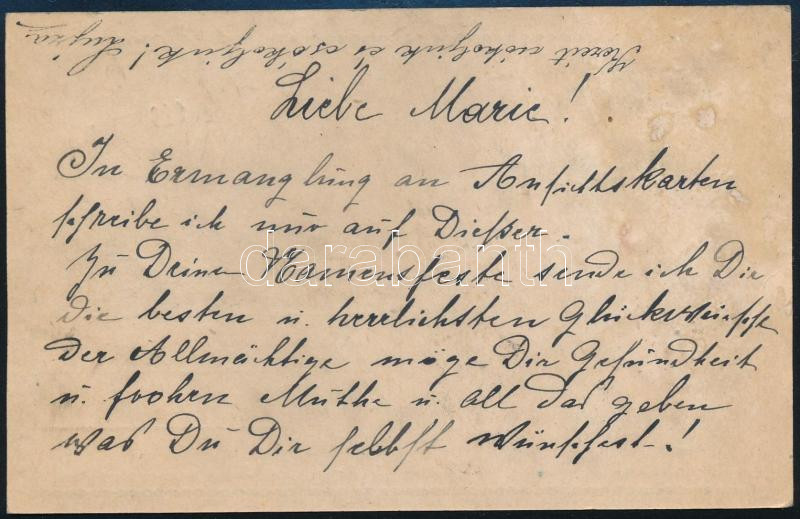 Kezeit csókoljuk és csókoljuk! Lujza.
Liebe Marie!
In Ermanglung an Ansichtskarten
schreibe ich nur auf Dießer.
Zu Deinen Namensfeste sende ich Dir
die besten u. herrlichsten Glückwünsche
der Allmächtige möge Dir Gesundheit
u. froohen Muthe u. all das geben
was Du Dir selbst wünschest!
darabanth